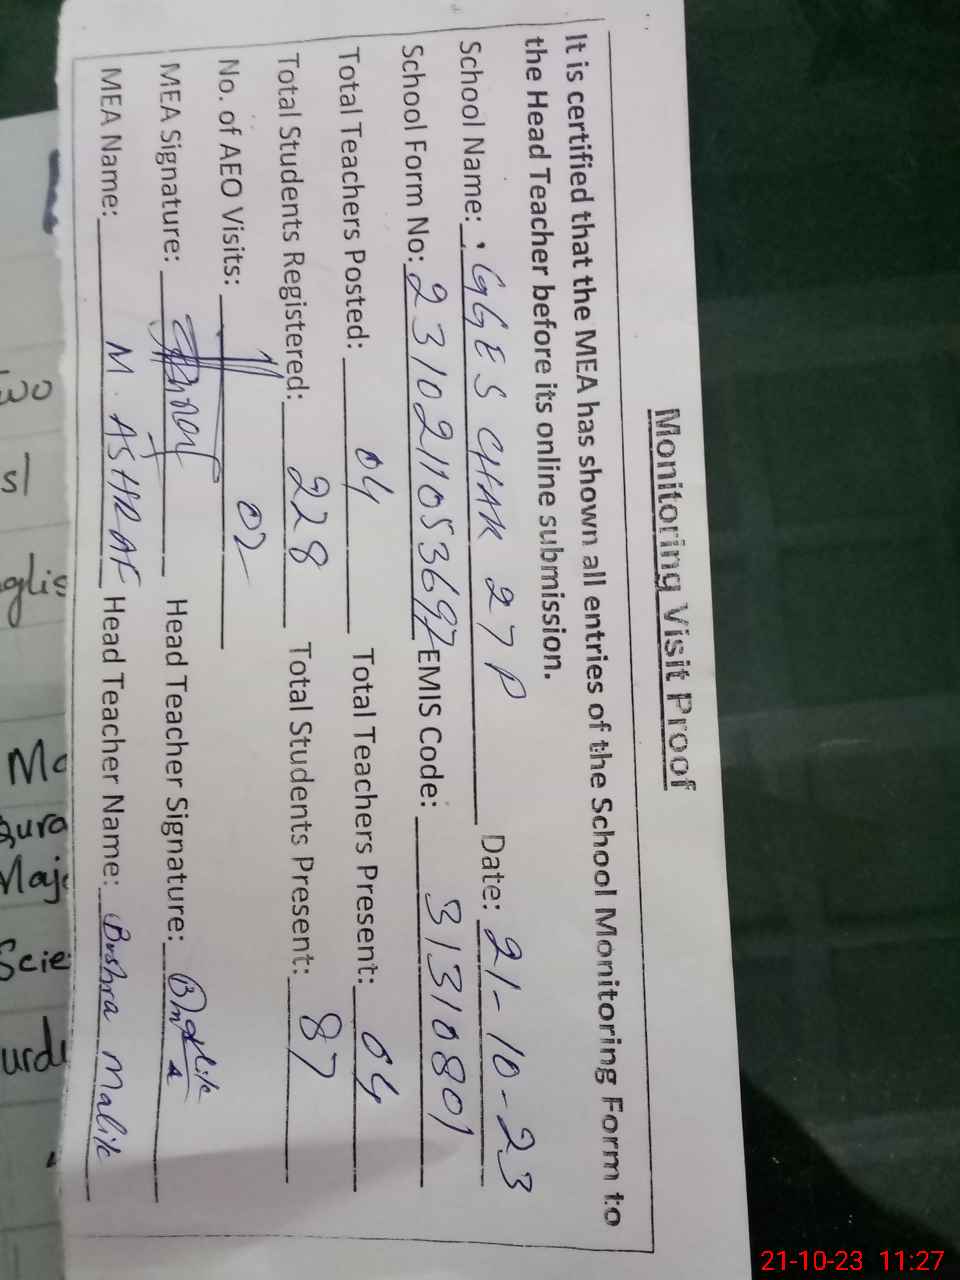 Monitoring Visit Proof
It is certified that the MEA has shown all entries of the School Monitoring Form to
the Head Teacher before its online submission.
School Name: GGES CHAK 27P Date: 21-10-23
School Form No: 2310211053697 EMIS Code: 31310801
Total Teachers Posted: 04 Total Teachers Present: 04
Total Students Registered: 228 Total Students Present: 87
No. of AEO Visits: 02
MEA Signature: Head Teacher Signature:
MEA Name: M. ASHRAF Head Teacher Name: Bushra Malik
21-10-23 11:27